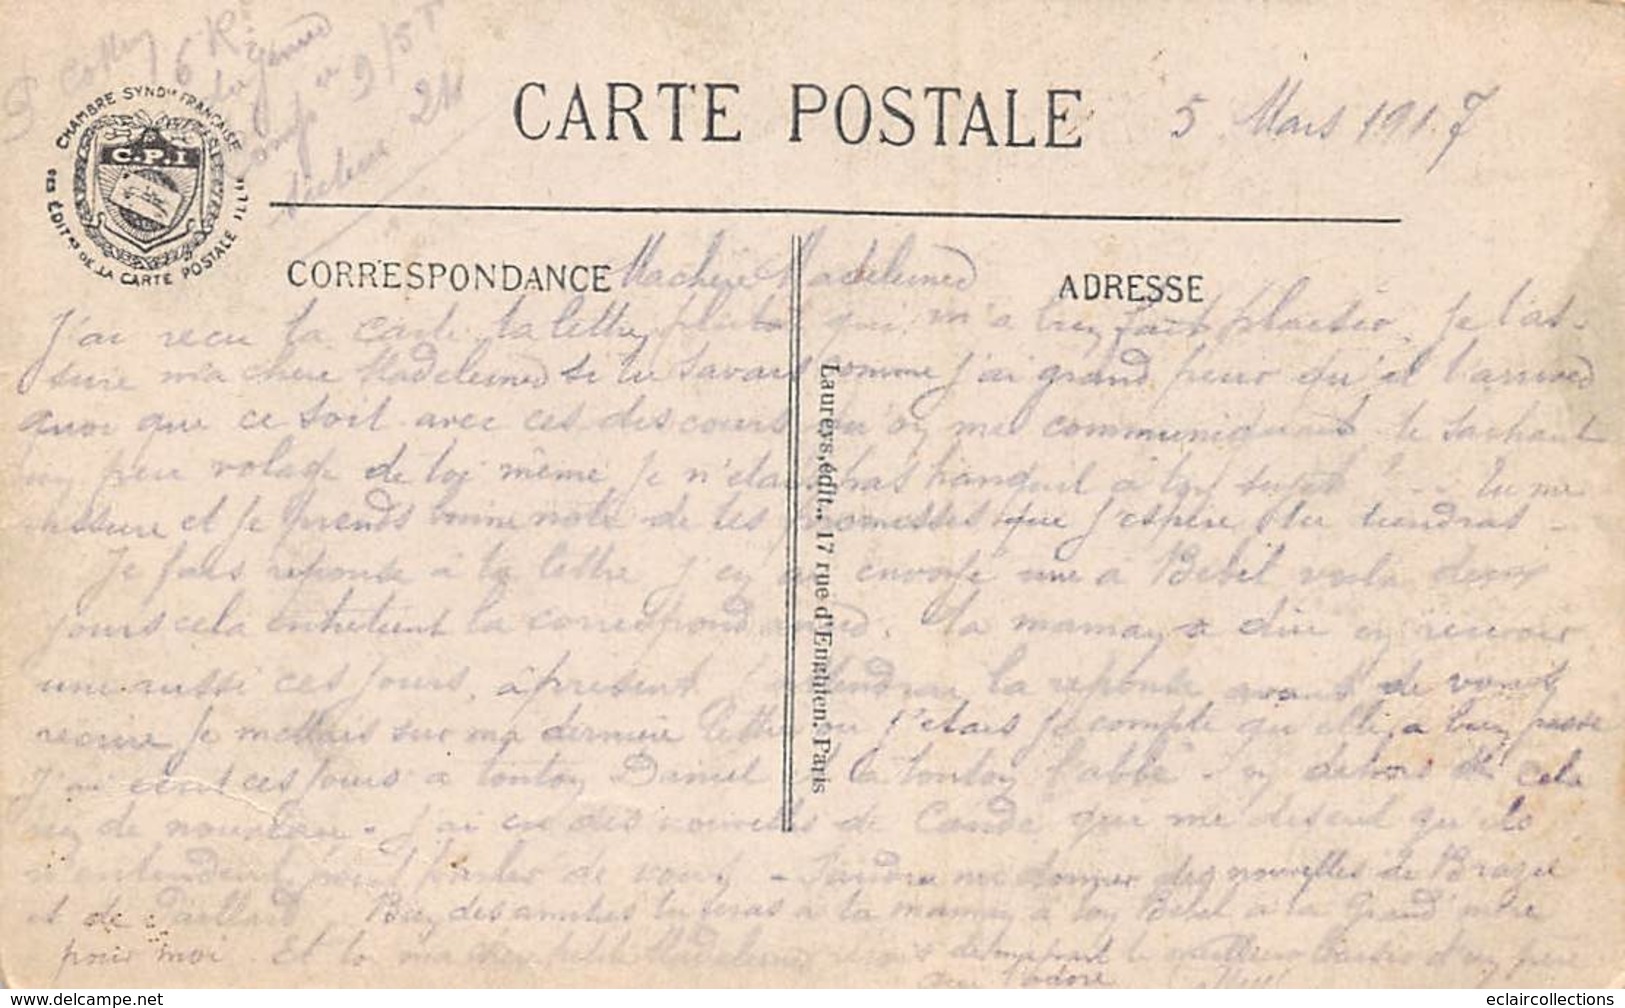 P Collin
6 R^t
du génie
Comp^ie 9/5 T
secteur 211
CHAMBRE SYND^LE FRANÇAISE
C.P.I
DES ÉDIT^RS DE LA CARTE POSTALE ILL^ÉE
CARTE POSTALE
5 Mars 1917
CORRESPONDANCE
ADRESSE
Ma chère Madeleine
J'ai recu ta carte ta lettre plutot qui m'a bien fait plaisir. Je t'as-
sure ma chère Madeleine si tu savais comme j'ai grand peur qu'il t'arrive
quoi que ce soit avec ces discours qu'on me communiquait te sachant
un peu volage de toi même je n'étais pas tranquil à ton sujet - Tu me
rassure et je prends bonne note de tes promesses que j'espère tu tiendras -
Je fais reponse à ta lettre, j'en ai envoyé une a Bebel voila deux
jours cela entretient la correspondance. Ta maman a du en recevoir
une aussi ces jours, à présent j'attendrai la reponse avant de vous
recrire je mettais sur ma dernière lettre ou j'étais je compte qu'elle a bien passé
J'ai ecrit ces jours a tonton Daniel à la tonton l'abbé - en dehors de cela
rien de nouveau - J'ai eu des nouvelles de Condé que me disent qu'ils
n'entendent point parler de vous - Faudra me donner des nouvelles de
et de Paillard Bien des amitiés tu feras à ta maman à ton Bebel à ta Grand mère
pour moi. Et toi ma chère petite Madeleine recois de ma part le meilleur baiser d'un père
qui t'adore
Laureys, édit., 17 rue d'Enghien, Paris
eclaircollections
www.delcampe.net